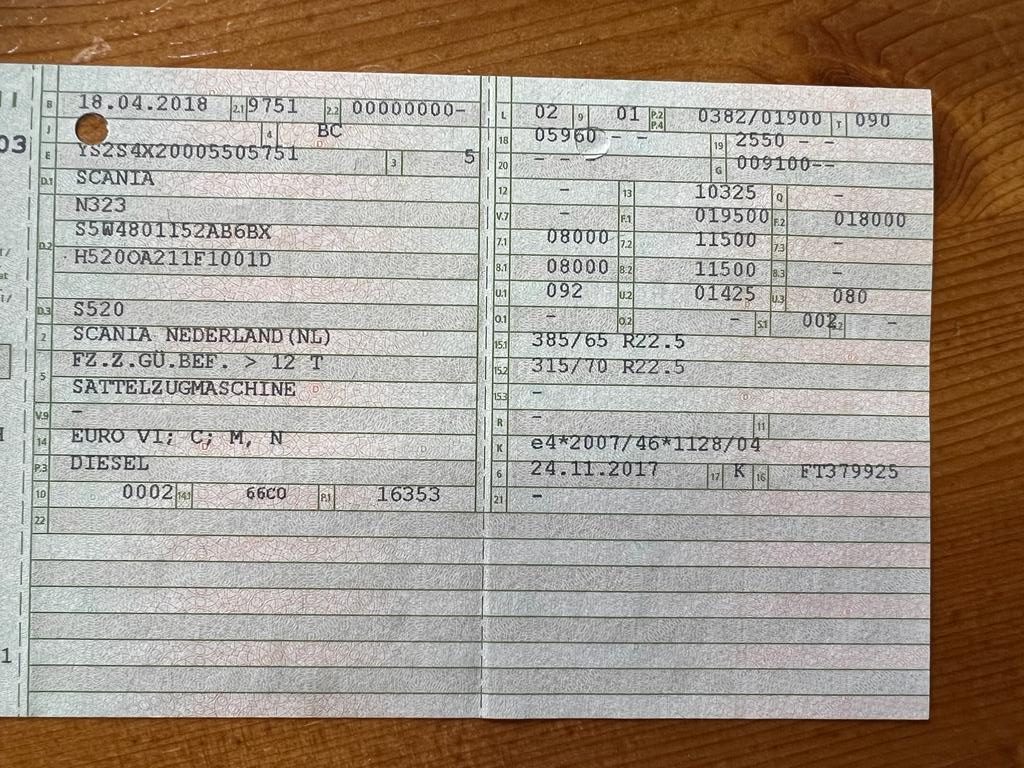 B 18.04.2018 2.1 9751 2.2 00000000-
J 4 BC
E YS2S4X20005505751 3 5
D.1 SCANIA
N323
D.2 S5W4801I52AB6BX
H520OA211F1001D
D.3 S520
2 SCANIA NEDERLAND(NL)
FZ.Z.GÜ.BEF. > 12 T
5 SATTELZUGMASCHINE
V.9 -
14 EURO VI; C; M, N
P.3 DIESEL
10 0002 14.1 66C0 P.1 16353
22
L 02 9 01 P.2 P.4 0382/01900 T 090
18 05960 - - 19 2550 - -
20 - - - G 009100--
12 - 13 10325 Q -
V.7 - F.1 019500 F.2 018000
7.1 08000 7.2 11500 7.3 -
8.1 08000 8.2 11500 8.3 -
U.1 092 U.2 01425 U.3 080
O.1 - O.2 - S.1 002 S.2 -
15.1 385/65 R22.5
15.2 315/70 R22.5
15.3 -
R - 11
K e4*2007/46*1128/04
6 24.11.2017 17 K 16 FT379925
21 -
03
1